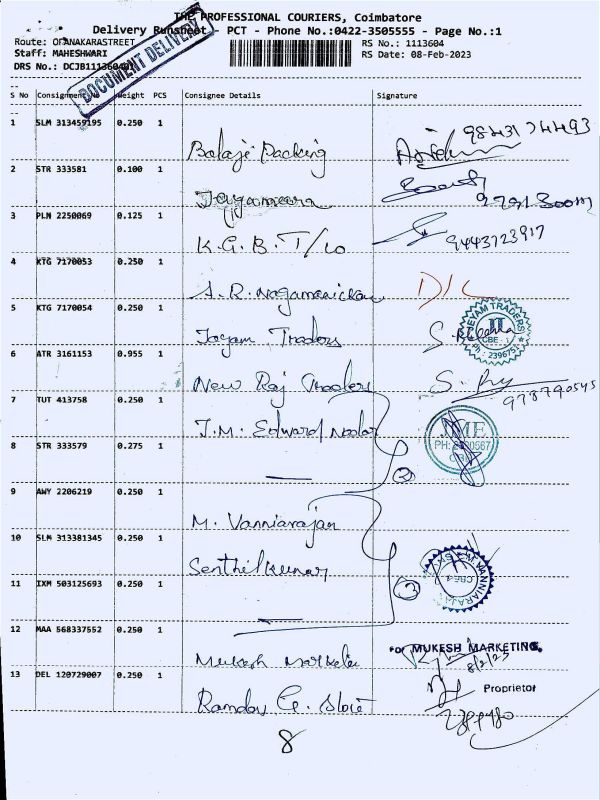 THE PROFESSIONAL COURIERS, Coimbatore
Delivery Runsheet - PCT - Phone No.:0422-3505555 - Page No.:1
Route: OPANAKARASTREET RS No.: 1113604
Staff: MAHESHWARI RS Date: 08-Feb-2023
DRS No.: DCJB1113604
DOCUMENT DELIVERY
S No Consignment No Weight PCS Consignee Details Signature
1 SLM 313459195 0.250 1 Balaji Packing
2 STR 333581 0.100 1
3 PLM 2250069 0.125 1 K.G.B. T/co 9443723917
4 KTG 7170053 0.250 1 A.R. Nagamanickam D/C
5 KTG 7170054 0.250 1 Jayam Traders
JEYAM TRADERS
CBE - 1
Ph: 239675
6 ATR 3161153 0.955 1 New Raj Traders
7 TUT 413758 0.250 1 J.M. Edward Nadar
JME
8 STR 333579 0.275 1 — 2
9 AWY 2206219 0.250 1 M. Vanniarajan
10 SLM 313381345 0.250 1 Senthilkumar
VANNIARAJAN
CBE-1
11 IXM 503125693 0.250 1 — 3
12 MAA 568337552 0.250 1 Mukesh Marketing
For MUKESH MARKETING,
8/2/23
Proprietor
13 DEL 120729007 0.250 1 Ramdas G.
8